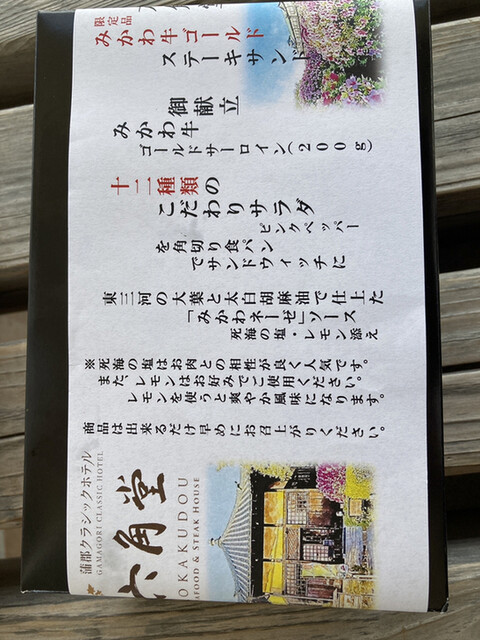 限定品
みかわ牛ゴールド
ステーキサンド
御献立
みかわ牛
ゴールドサーロイン(200g)
十二種類の
こだわりサラダ
ピンクペッパー
を角切り食パン
でサンドウィッチに
東三河の大葉と太白胡麻油で仕上た
「みかわネーゼ」ソース
死海の塩・レモン添え
※死海の塩はお肉との相性が良く人気です。
また、レモンはお好みでご使用ください。
レモンを使うと爽やか風味になります。
商品は出来るだけ早めにお召上がりください。
蒲郡クラシックホテル
GAMAGORI CLASSIC HOTEL
六角堂
OKAKUDOU
AFOOD & STEAK HOUSE